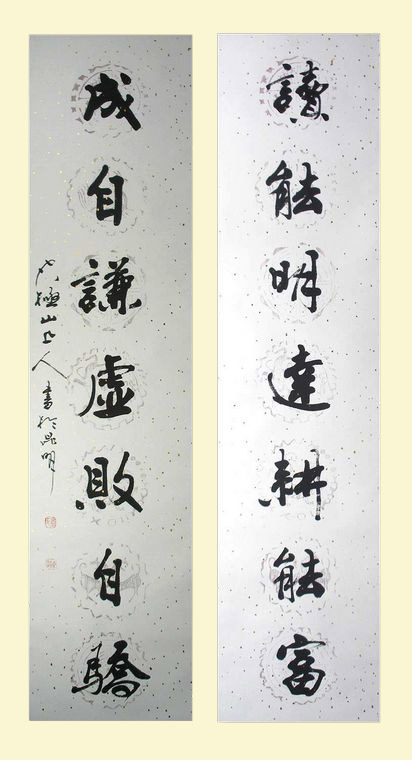 讀能明達耕能富
成自謙虚敗自驕
極山上人 書於昆明